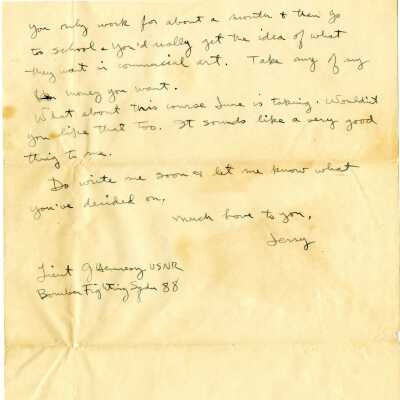 you only work for about a month & then go
to school & you'd really get the idea of what
they want in commercial art. Take any of my
money you want.
What about this course June is taking. Wouldn't
you like that too. It sounds like a very good
thing to me.
Do write me soon & let me know what
you've decided on,
Much love to you,
Jerry
Lieut J Hennesy USNR
Bomber Fighting Sqdn 88